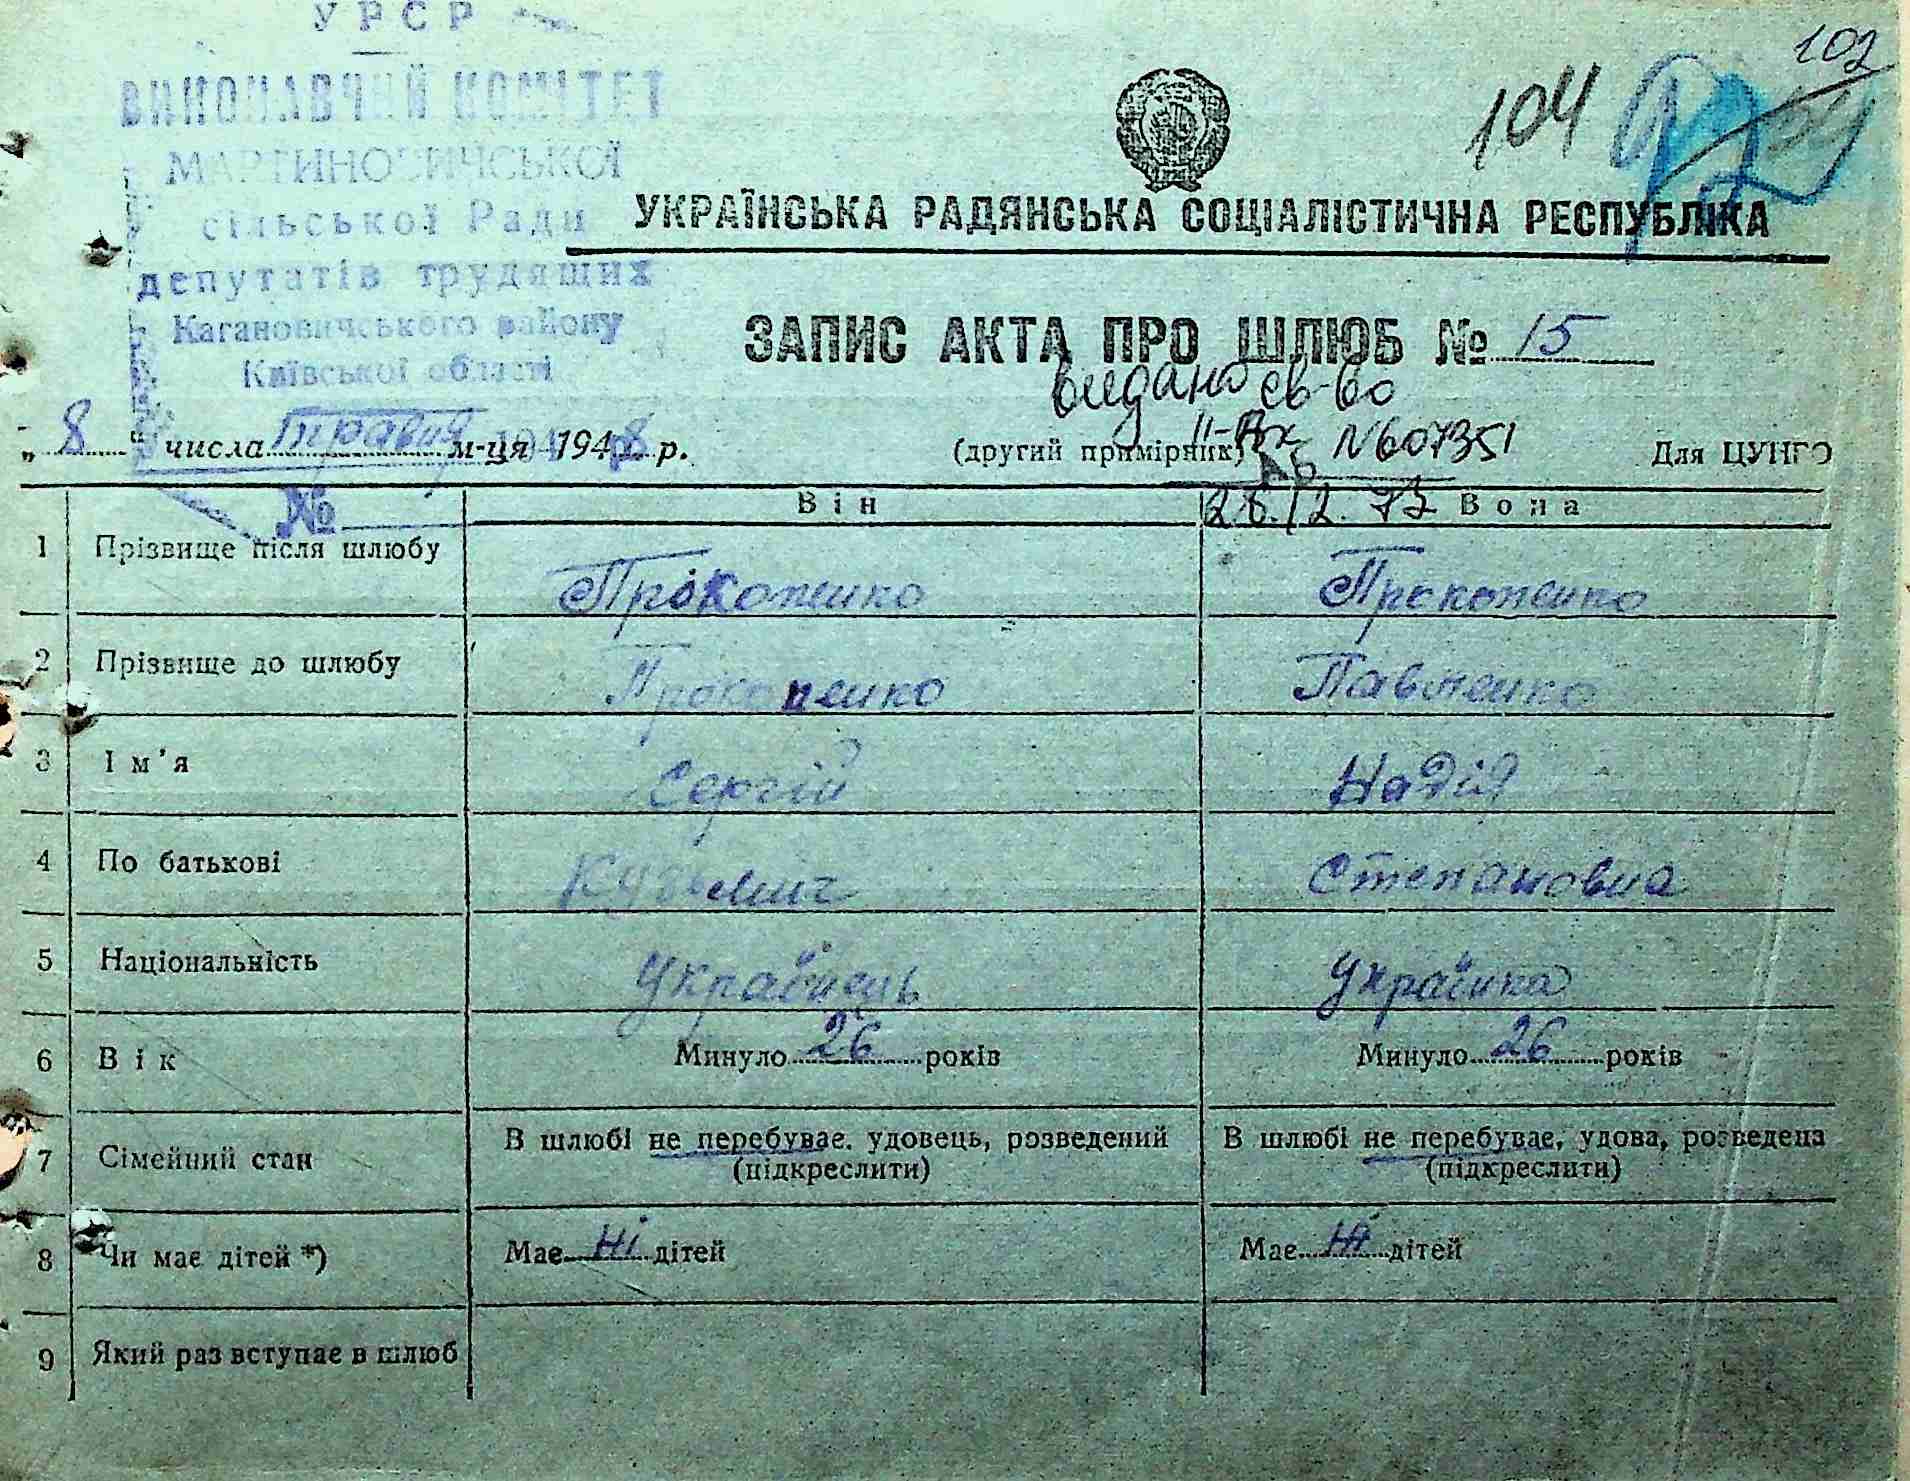 УРСР
ВИКОНАВЧИЙ КОМІТЕТ
МАРТИНОВИЧСЬКОЇ
сільської Ради
депутатів трудящих
Кагановичського району
Київської області
№
102
104
УКРАЇНСЬКА РАДЯНСЬКА СОЦІАЛІСТИЧНА РЕСПУБЛІКА
ЗАПИС АКТА ПРО ШЛЮБ № 15
видано св-во
„ 8 “ числа Травня м-ця 1948 р. (другий примірник) II-ЯК N 607351 Для ЦУНГО
26.12.73
Він Вона
1 Прізвище після шлюбу Прокопенко Прокопенко
2 Прізвище до шлюбу Прокопенко Павленко
3 Ім’я Сергій Надія
4 По батькові Кузьмич Степановна
5 Національність Українець Українка
6 Вік Минуло 26 років Минуло 26 років
7 Сімейний стан В шлюбі не перебуває, удовець, розведений (підкреслити) В шлюбі не перебуває, удова, розведена (підкреслити)
8 Чи має дітей *) Має ні дітей Має ні дітей
9 Який раз вступає в шлюб